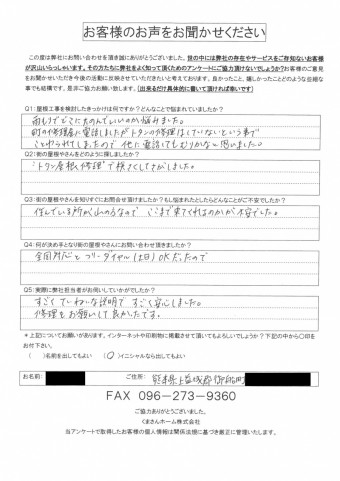 お客様のお声をお聞かせください
この度は弊社にお問い合わせを頂き誠にありがとうございました。世の中には弊社の存在やサービスをご存知ないお客様
が沢山いらっしゃいます。その方たちに弊社をよく知って頂くためのアンケートにご協力頂けないでしょうか？お客様のご意見
をお聞かせいただき今後の活動に反映させていただきたいと考えております。良かったこと、嬉しかったことどのような些細な
事でも結構です。是非ご協力お願い致します。【出来るだけ具体的に書いて頂ければ幸いです】
Q1：屋根工事を検討したきっかけは何ですか？どんなことで悩まれていましたか？
雨もりでどこにたのんでいいのか悩みました。
町の修理店に電話しましたがトタンの修理はしていないという事で
ことわられてしまったので 他に電話してもムリかな～と思いました。
Q2：街の屋根やさんをどのように探しましたか？
"トタン屋根 修理"で検さくしてさがしました。
Q3：街の屋根やさんを知りすぐにお問合せ頂けましたか？もし悩まれたとしたらどんなことがご不安でしたか？
住んでいる所が山の方なので ここまで来てくれるのかが不安でした。
Q4：何が決め手となり街の屋根やさんにお問い合わせ頂きましたか？
全国対応とフリーダイヤル(土日)OKだったので
Q5：実際に弊社担当者がお伺いしていかがでしたか？
すごくていねいな説明で すごく安心しました。
修理をお願いして良かったです。
＊上記についてお願いがあります。インターネットや印刷物に掲載させて頂いてもよろしいでしょうか？下記の中から〇印を
お付下さい。
( )名前を出してもよい (〇)イニシャルなら出してもよい
お名前： ご住所： 熊本県上益城郡御船町
FAX 096-273-9360
ご協力ありがとうございました。
くまさんホーム株式会社
当アンケートで取得したお客様の個人情報は関係法規に基づき厳正に管理いたします。